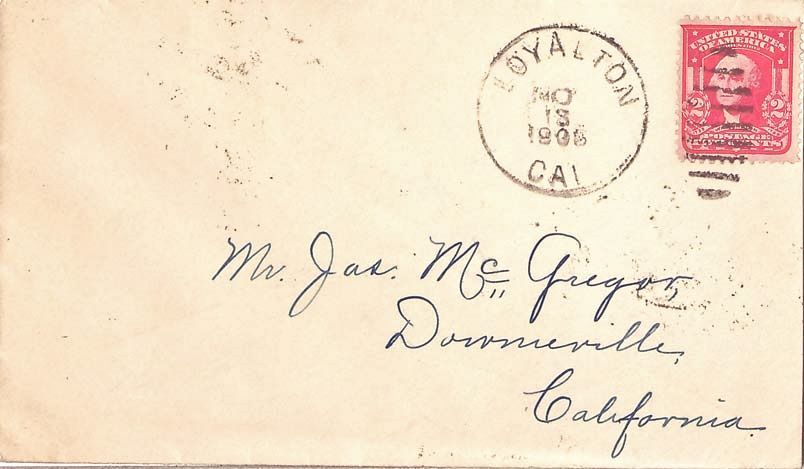 LOYALTON
NO
13
CAL
UNITED STATES
OF AMERICA
2 2
POSTAGE
CENTS
Mr. Jas. McGregor,
Downieville,
California.